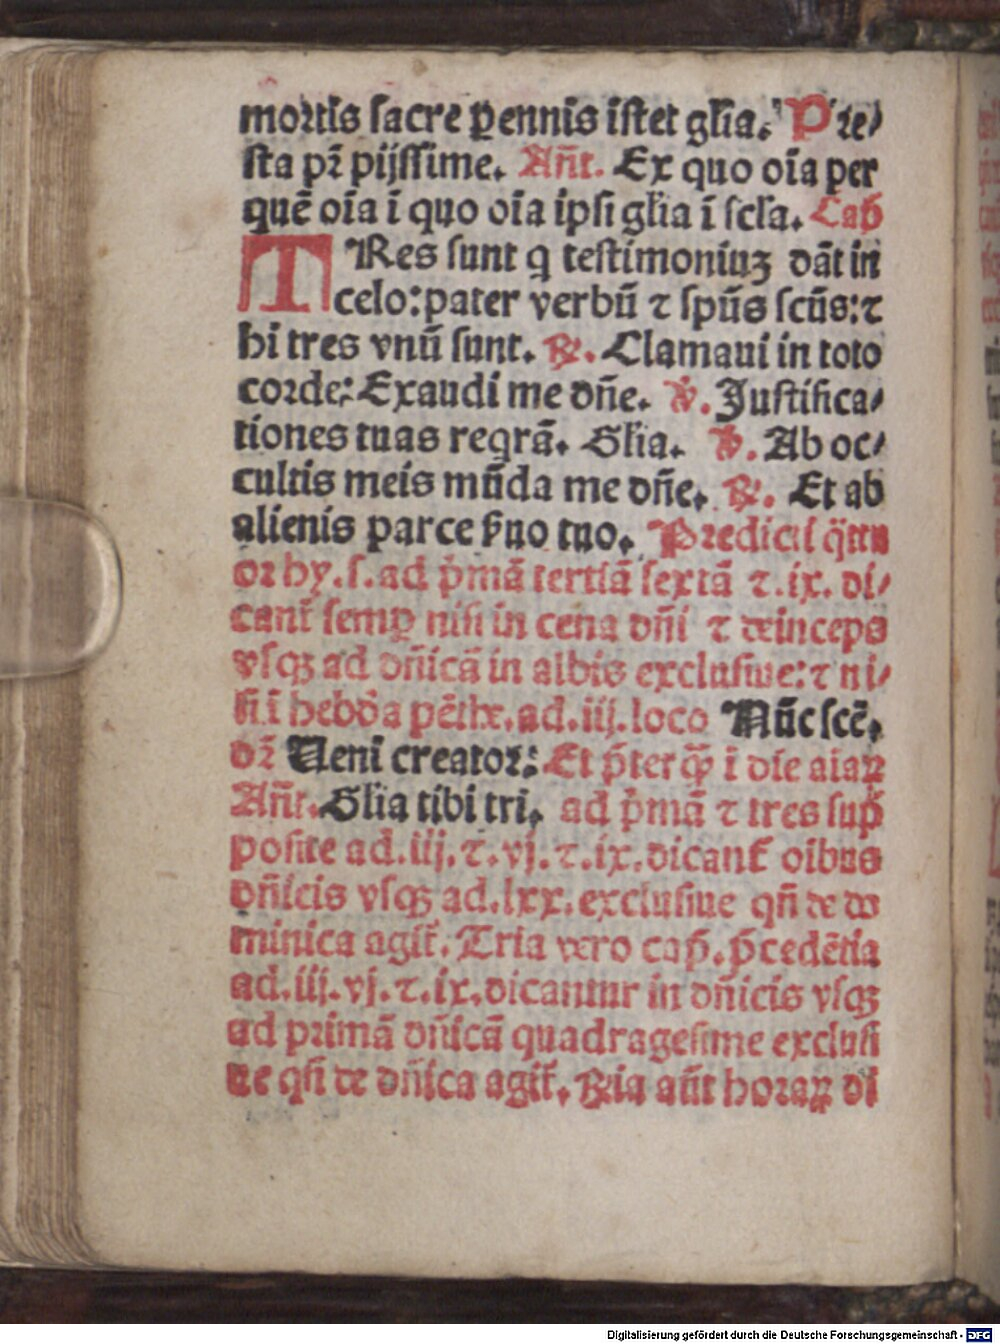 mortis sacre ꝑennis istet gl'ia. Pre/
sta pr̄ pijssime. An̄t. Ex quo oīa per
quē oīa ī quo oīa ipsi gl'ia ī scl'a. Cap̄
TRes sunt q̄ testimoniuꝫ dāt in
celo: pater verbū ⁊ spūs scūs: ⁊
hi tres vnū sunt. ℟. Clamaui in toto
corde: Exaudi me dn̄e. ℣. Justifica/
tiones tuas reqrā. Gl'ia. ℣. Ab oc/
cultis meis mūda me dn̄e. ℟. Et ab
alienis parce ẜuo tuo. Predicti q̄ttu
or hy. s. ad p̄mā tertiā sextā ⁊ .ix. di/
cant̄ semꝑ nisi in cena dn̄i ⁊ deinceps
vsqꝫ ad dn̄icā in albis exclusiue: ⁊ ni/
si ī hebd'a pēthe. ad .iij. loco Nūc scē.
dr̄ Ueni creator: Et p̄terꝙ̄ ī die aīaꝝ
An̄t. Gl'ia tibi tri. ad p̄mā ⁊ tres sup̄
posite ad .iij. ⁊ .vj. ⁊ .ix. dicant̄ oibus
dn̄icis vsqꝫ ad .lxx. exclusiue qn̄ de do
minica agit̄. Tria vero cap̄. p̄cedētia
ad .iij. vj. ⁊ .ix. dicantur in dn̄icis vsqꝫ
ad primā dn̄icā quadragesime exclusi
ue qn̄ de dn̄ica agit̄. ℟ia aūt horaꝝ di
Digitalisierung gefördert durch die Deutsche Forschungsgemeinschaft - DFG